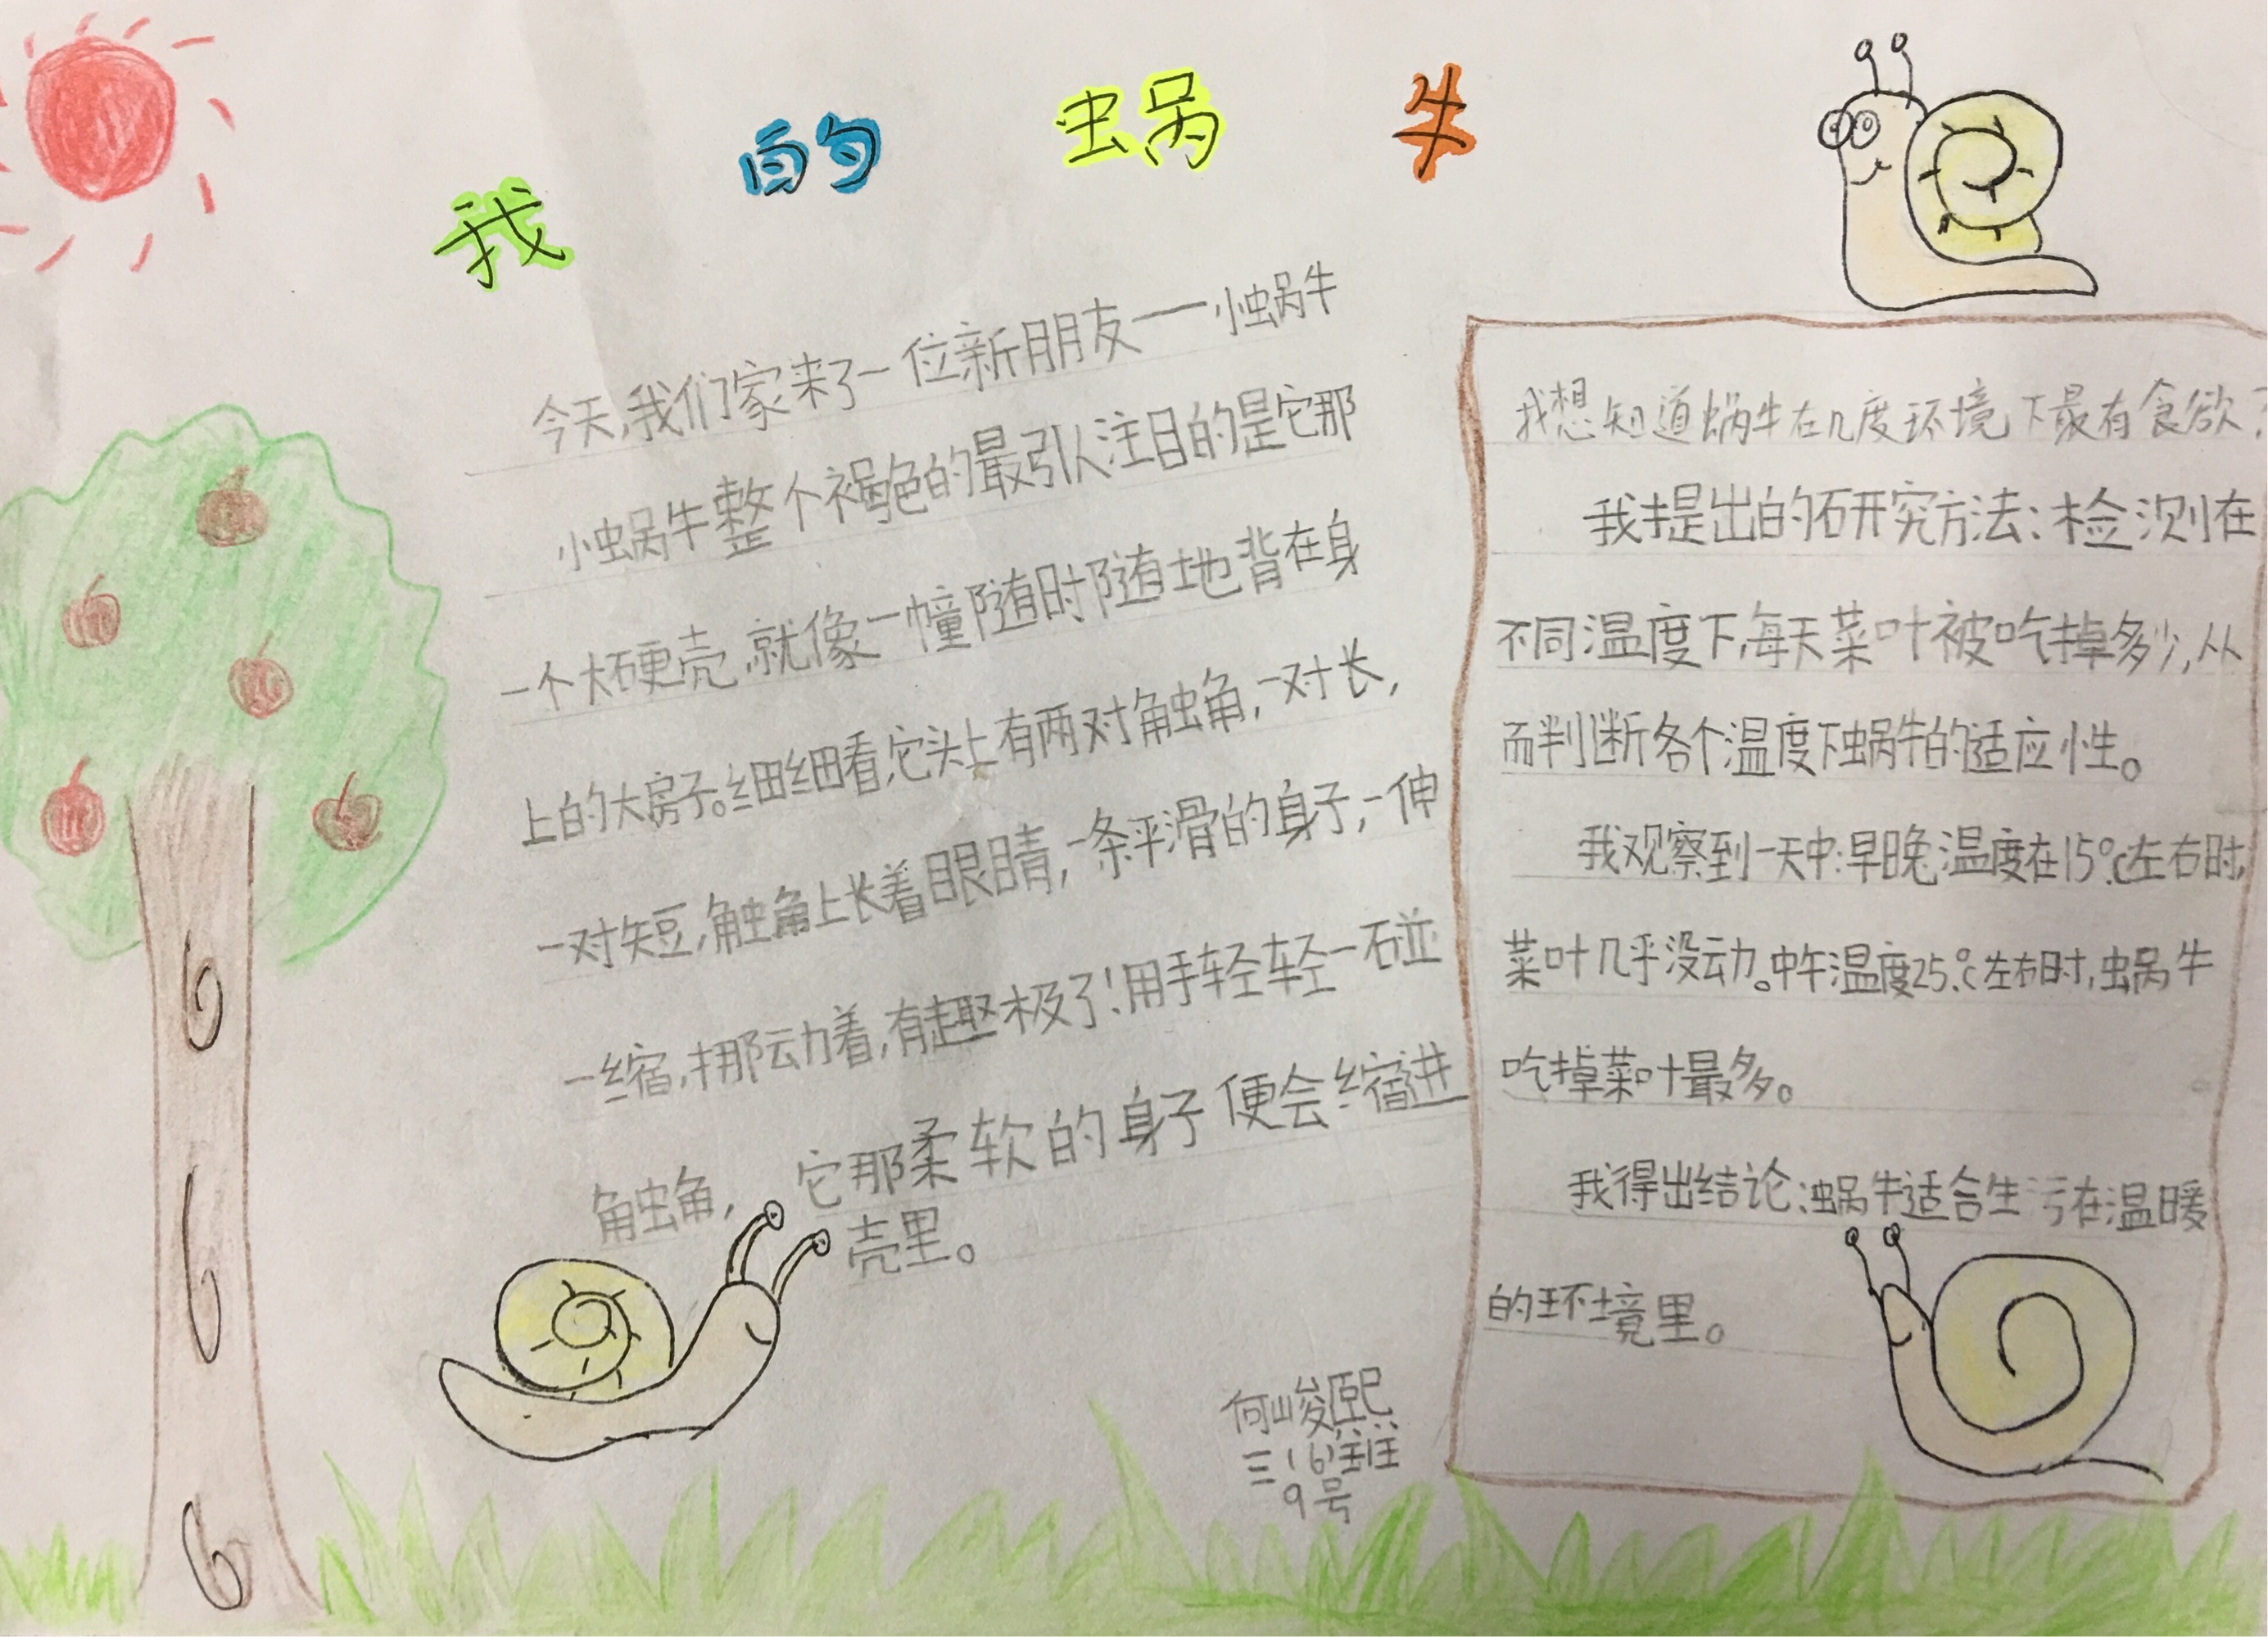 我的蜗牛
今天,我们家来了一位新朋友——小蜗牛
小蜗牛整个褐色的最引人注目的是它那
一个大硬壳,就像一幢随时随地背在身
上的大房子。细细看,它头上有两对触角,一对长,
一对短,触角上长着眼睛,一条平滑的身子,一伸
一缩,挪动着,有趣极了!用手轻轻一碰
触角,它那柔软的身子便会缩进
壳里。
何峻熙
三(6)班
9号
我想知道蜗牛在几度环境下最有食欲?
我提出的研究方法:检测在
不同温度下,每天菜叶被吃掉多少,从
而判断各个温度下蜗牛的适应性。
我观察到一天中:早晚温度在15℃左右时,
菜叶几乎没动。中午温度25℃左右时,蜗牛
吃掉菜叶最多。
我得出结论:蜗牛适合生污在温暖
的环境里。